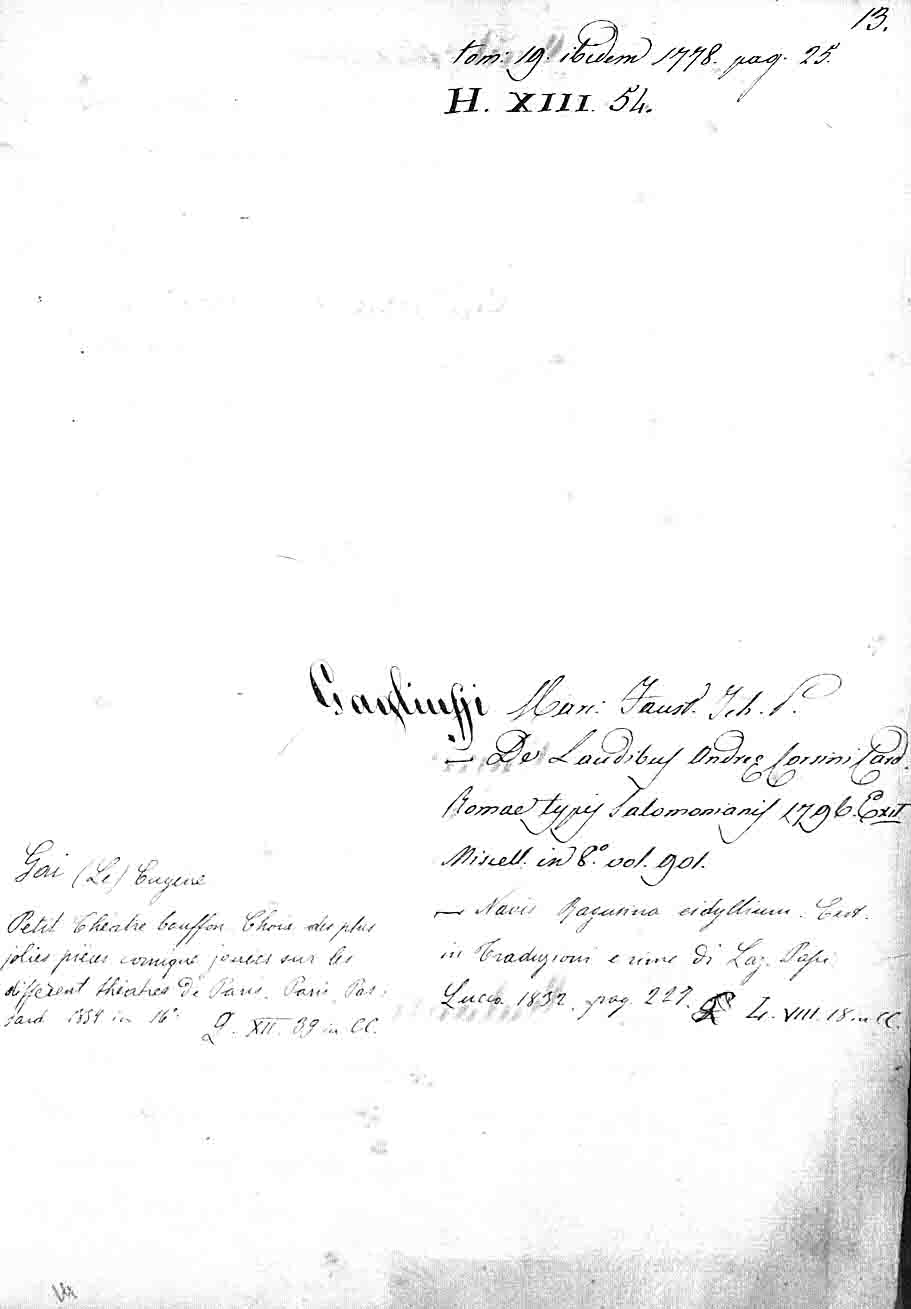 13.
tom: 19. ibidem 1778. pag. 25.
H. XIII. 54.
Gagliuffi Marc: Faust. Sch. P.
— De Laudibus Andreę Corsini Card.
Romae typis Salomonianis 1796. Exit
Miscell. in 8.° vol. 901.
— Navis Ragusina eidyllium. Exst.
in Traduzioni e rime di Laz. Papi
Lucca 1832. pag. 227. L. VIII. 18 in CC.
Gai (Le) Eugene
Petit théatre bouffon. Choix des plus
jolies pièces comique jouées sur les
différent théatres de Paris. Paris. Pas:
sard 1859 in 16° Q. XII. 39 in CC.